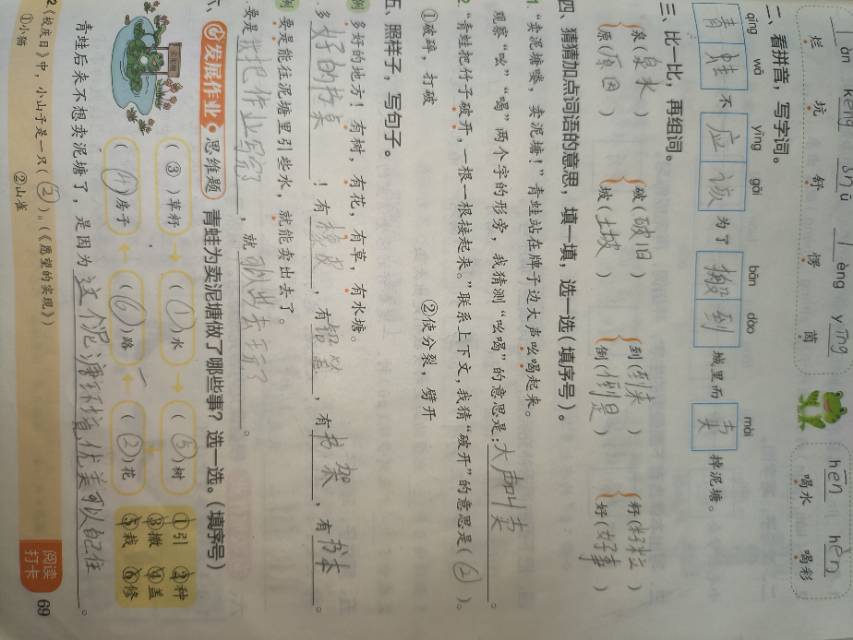 làn kēng shū lèng yīng hē hè
烂 坑 舒 愣 茵 喝水 喝彩
二、看拼音，写字词。
qīng wā yīng gāi bān dào mài
青蛙 不 应该 为了 搬到 城里而 卖 掉泥塘。
三、比一比，再组词。
泉（泉水） 破（破旧） 到（到来） 籽（籽粒）
原（原因） 坡（土坡） 倒（倒是） 好（好事）
四、猜猜加点词语的意思，填一填，选一选（填序号）。
1. “卖泥塘喽，卖泥塘！”青蛙站在牌子边大声吆喝起来。
观察“吆”“喝”两个字的形旁，我猜测“吆喝”的意思是：大声叫卖。
2. “青蛙把竹子破开，一根一根接起来。”联系上下文，我猜“破开”的意思是（②）。
①破碎，打破 ②使分裂，劈开
五、照样子，写句子。
例 多好的地方！有树，有花，有草，有水塘。
多好的书桌！有橡皮，有铅笔，有书架，有书本。
例 要是能往泥塘里引些水，就能卖出去了。
要是我把作业写完了，就可以出去玩了。
六、发展作业 思维题 青蛙为卖泥塘做了哪些事？选一选。（填序号）
（③）草籽 （①）水 （⑤）树
（④）房子 （⑥）路 （②）花
①引 ②种
③撒 ④盖
⑤栽 ⑥修
青蛙后来不想卖泥塘了，是因为这个泥塘环境优美可以自己住。
2.《校庆日》中，小山子是一只（②）。（《愿望的实现》）
①小猫 ②山雀
阅读打卡
69